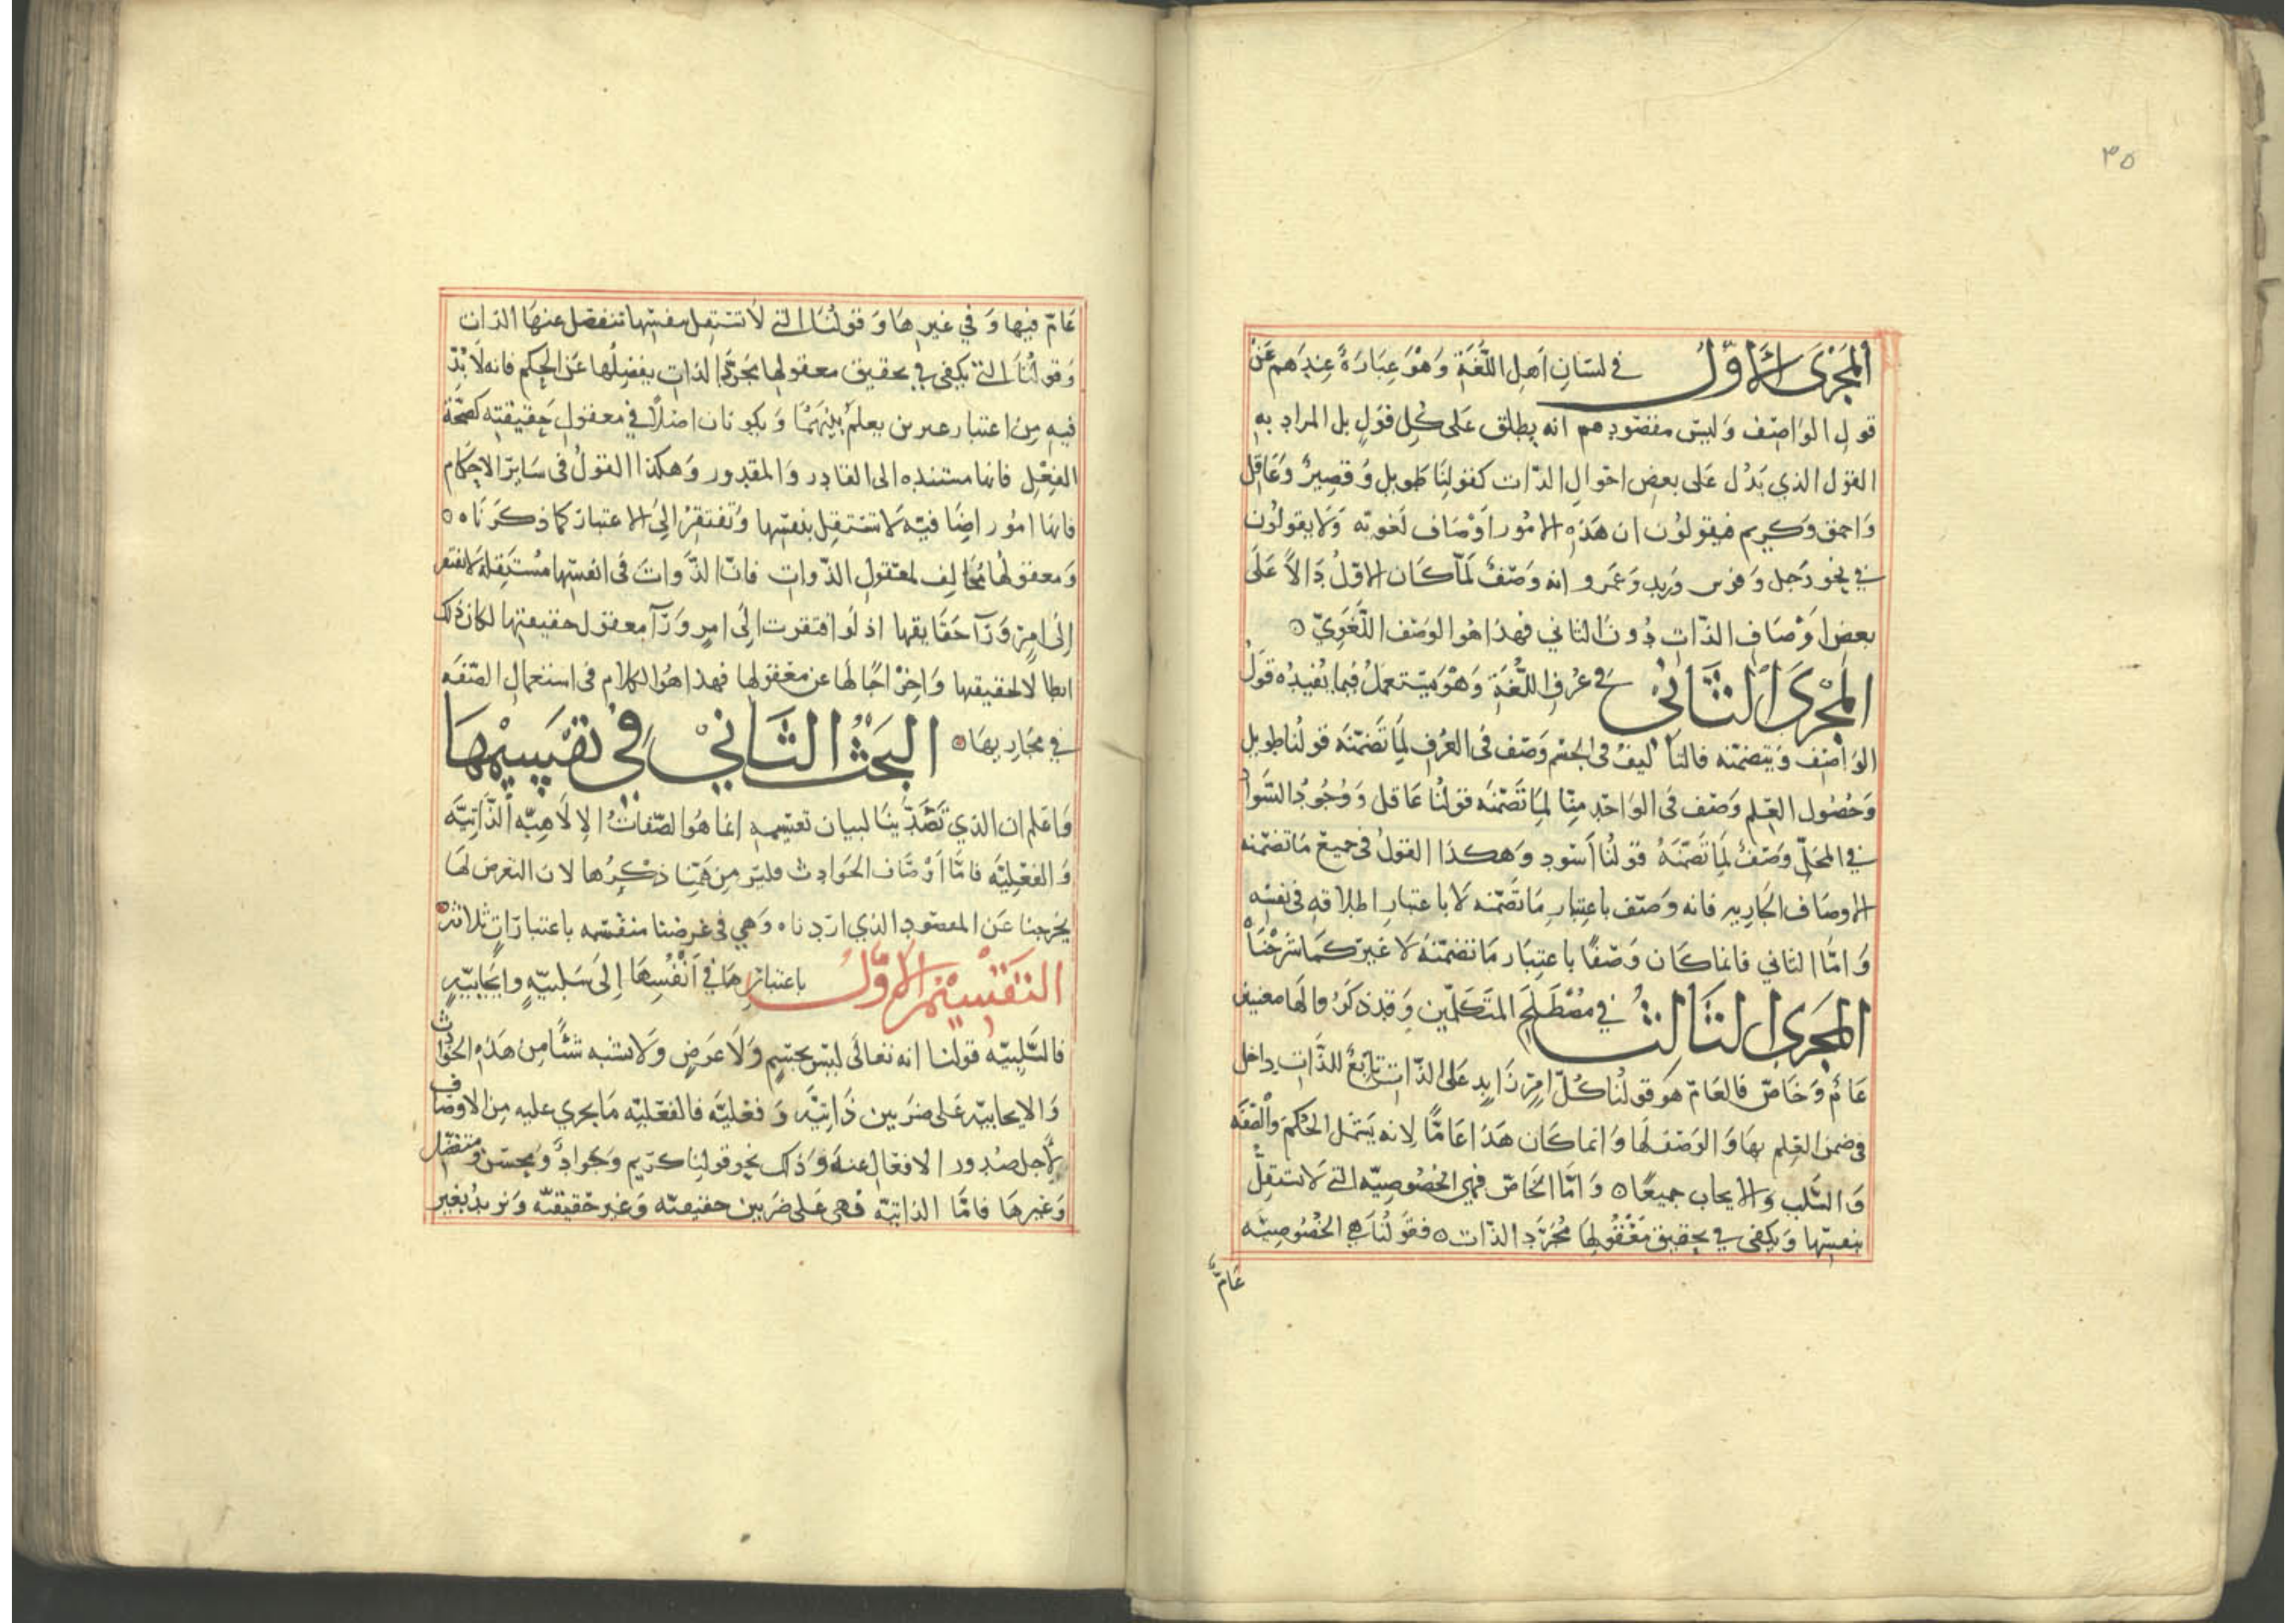 ٣٥
المجرى الأول في لسان أهل اللغة وهو عبارة عندهم عن
قول الواصف وليس مقصودهم انه يطلق على كل قول بل المراد به
القول الذي يدل على بعض احوال الذات كقولنا طويل وقصير وعاقل
واحمق وكريم فيقولون ان هذه الامور اوصاف لغويه ولا يقولون
في نحو رجل وفرس وزيد وعمرو انه وصف لما كان الاول دالا على
بعض اوصاف الذات دون الثاني فهذا هو الوصف اللغوي
المجرى الثاني في عرف اللغة وهو يستعمل فيما يفيده قول
الواصف ويتضمنه فالتأليف في الجسم وصف في العرف لما تضمنه قولنا طويل
وحصول العلم وصف في الواحد منا لما تضمنه قولنا عاقل ووجود السواد
في المحل وصف لما تضمنه قولنا أسود وهكذا القول في جميع ما تضمنه
الاوصاف الجاريه فانه وصف باعتبار ما تضمنه لا باعتبار اطلاقه في نفسه
واما الثاني فانما كان وصفا باعتبار ما تضمنه لا غير كما شرحنا
المجرى الثالث في مصطلح المتكلمين وقد ذكروا لها معنيين
عام وخاص فالعام هو قولنا كل امر زايد على الذات تابع للذات داخل
في ضمن العلم بها والوصف لها وانما كان هذا عاما لانه يشمل الحكم والصفه
والسلب والايجاب جميعا واما الخاص فهي الخصوصيه التي لا تستقل
بنفسها ويكفي في تحقيق معقولها مجرد الذات فقولنا هي الخصوصيه
عام
عام فيها وفي غيرها وقولنا التي لا تستقل بنفسها تنفصل عنها الذات
وقولنا التي يكفي في تحقيق معقولها مجرد الذات يفصلها عن الحكم فانه لا بد
فيه من اعتبار غيرين يعلم بينهما ويكونان اصلا في معقول حقيقته كصحة
الفعل فانها مستنده الى القادر والمقدور وهكذا القول في ساير الاحكام
فانها امور اضافيه لا تستقل بنفسها وتفتقر الى الاعتبار كما ذكرنا
ومعقولها مخالف لمعقول الذوات فان الذوات في انفسها مستقله لا تفتقر
إلى امر ورآ حقايقها اذ لو افتقرت إلى امر ورآ معقول حقيقتها لكان ذلك
ابطالا لحقيقتها واخراجا لها عن معقولها فهذا هو الكلام في استعمال الصفه
في مجاريها البحث الثاني في تقسيمها
واعلم ان الذي تصدينا لبيان تقسيمه انما هو الصفات الإلاهيه الذاتيه
والفعليه فاما أوصاف الحوادث فليس من همنا ذكرها لان التعرض لها
يخرجنا عن المقصود الذي اردناه وهي في غرضنا منقسمه باعتبارات ثلاثه
التقسيم الأول باعتبارها في أنفسها إلى سلبيه وايجابيه
فالسلبيه قولنا انه تعالى ليس بجسم ولا عرض ولا يشبه شئا من هذه الحوادث
والايجابيه على ضربين ذاتيه وفعليه فالفعليه ما يجري عليه من الاوصاف
لأجل صدور الافعال عنه وذلك نحو قولنا كريم وجواد ومحسن ومتفضل
وغيرها فاما الذاتيه فهي على ضربين حقيقيه وغير حقيقيه ونريد بغير